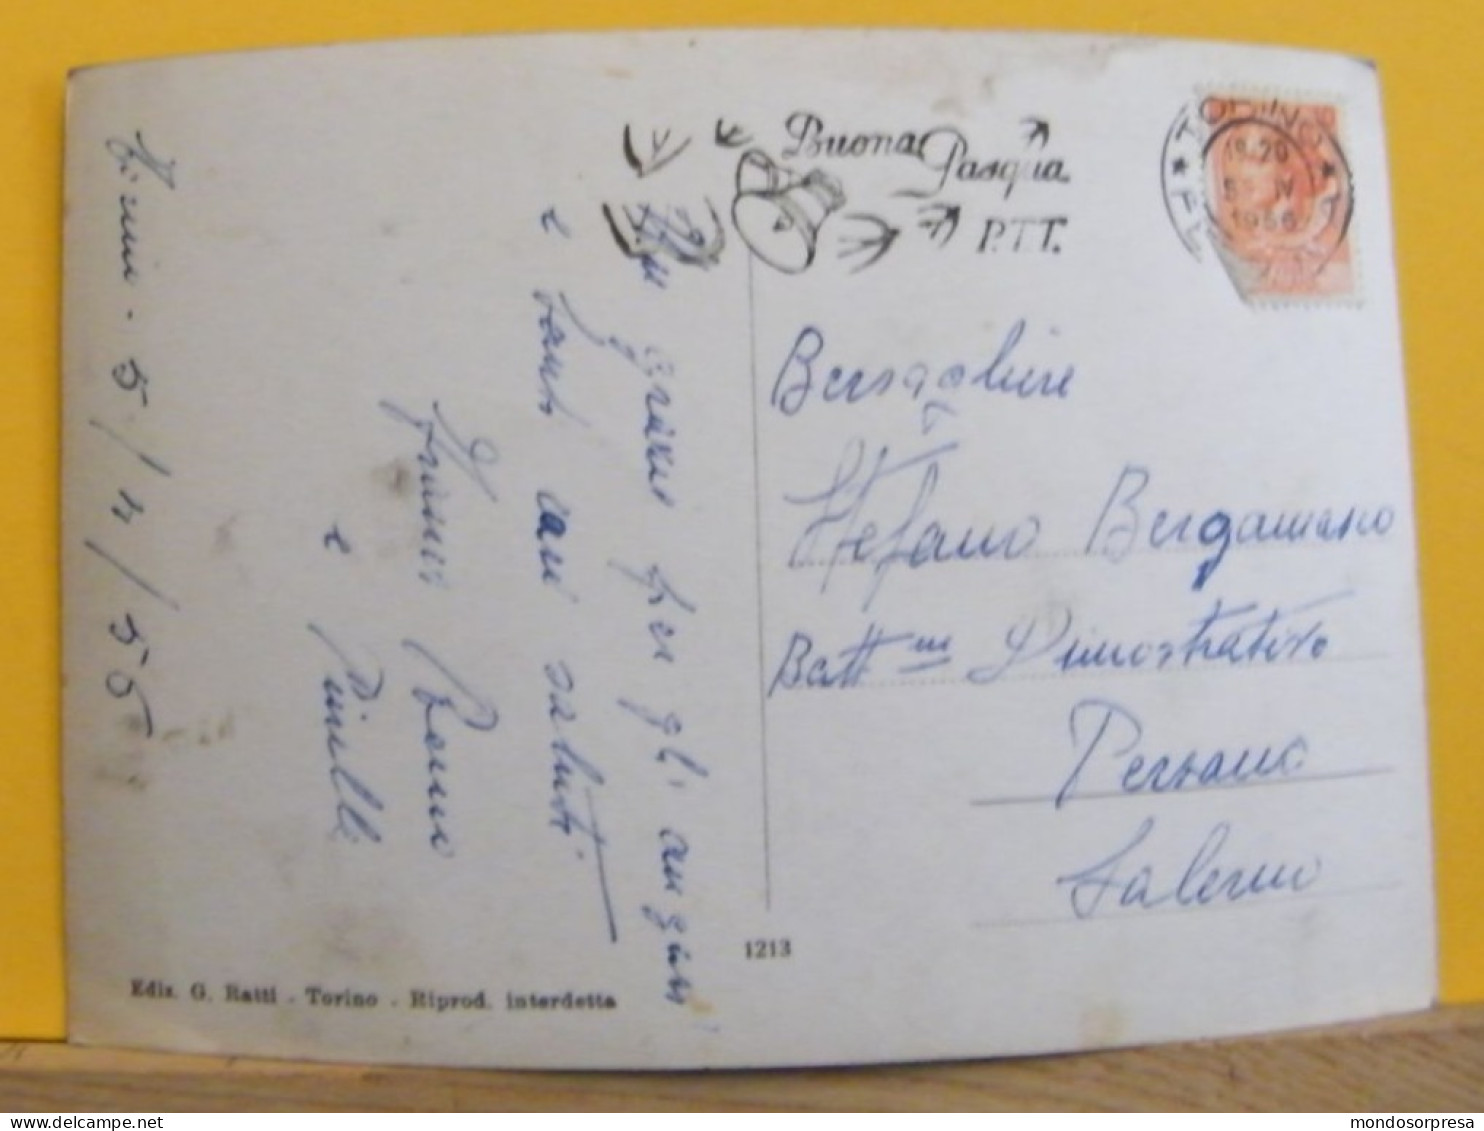 Torino - 5/4/56
Mille grazie per gli auguri
e tanti cari saluti
Remo
e Pinella
Buona Pasqua
P.T.T.
* TORINO *
18-20
5 IV
1956
Bersagliere
Stefano Bergamasco
Batt.m Dimostrativo
Persano
Salerno
1213
Ediz. G. Ratti - Torino - Riprod. interdetta
www.delcampe.net
mondosorpresa